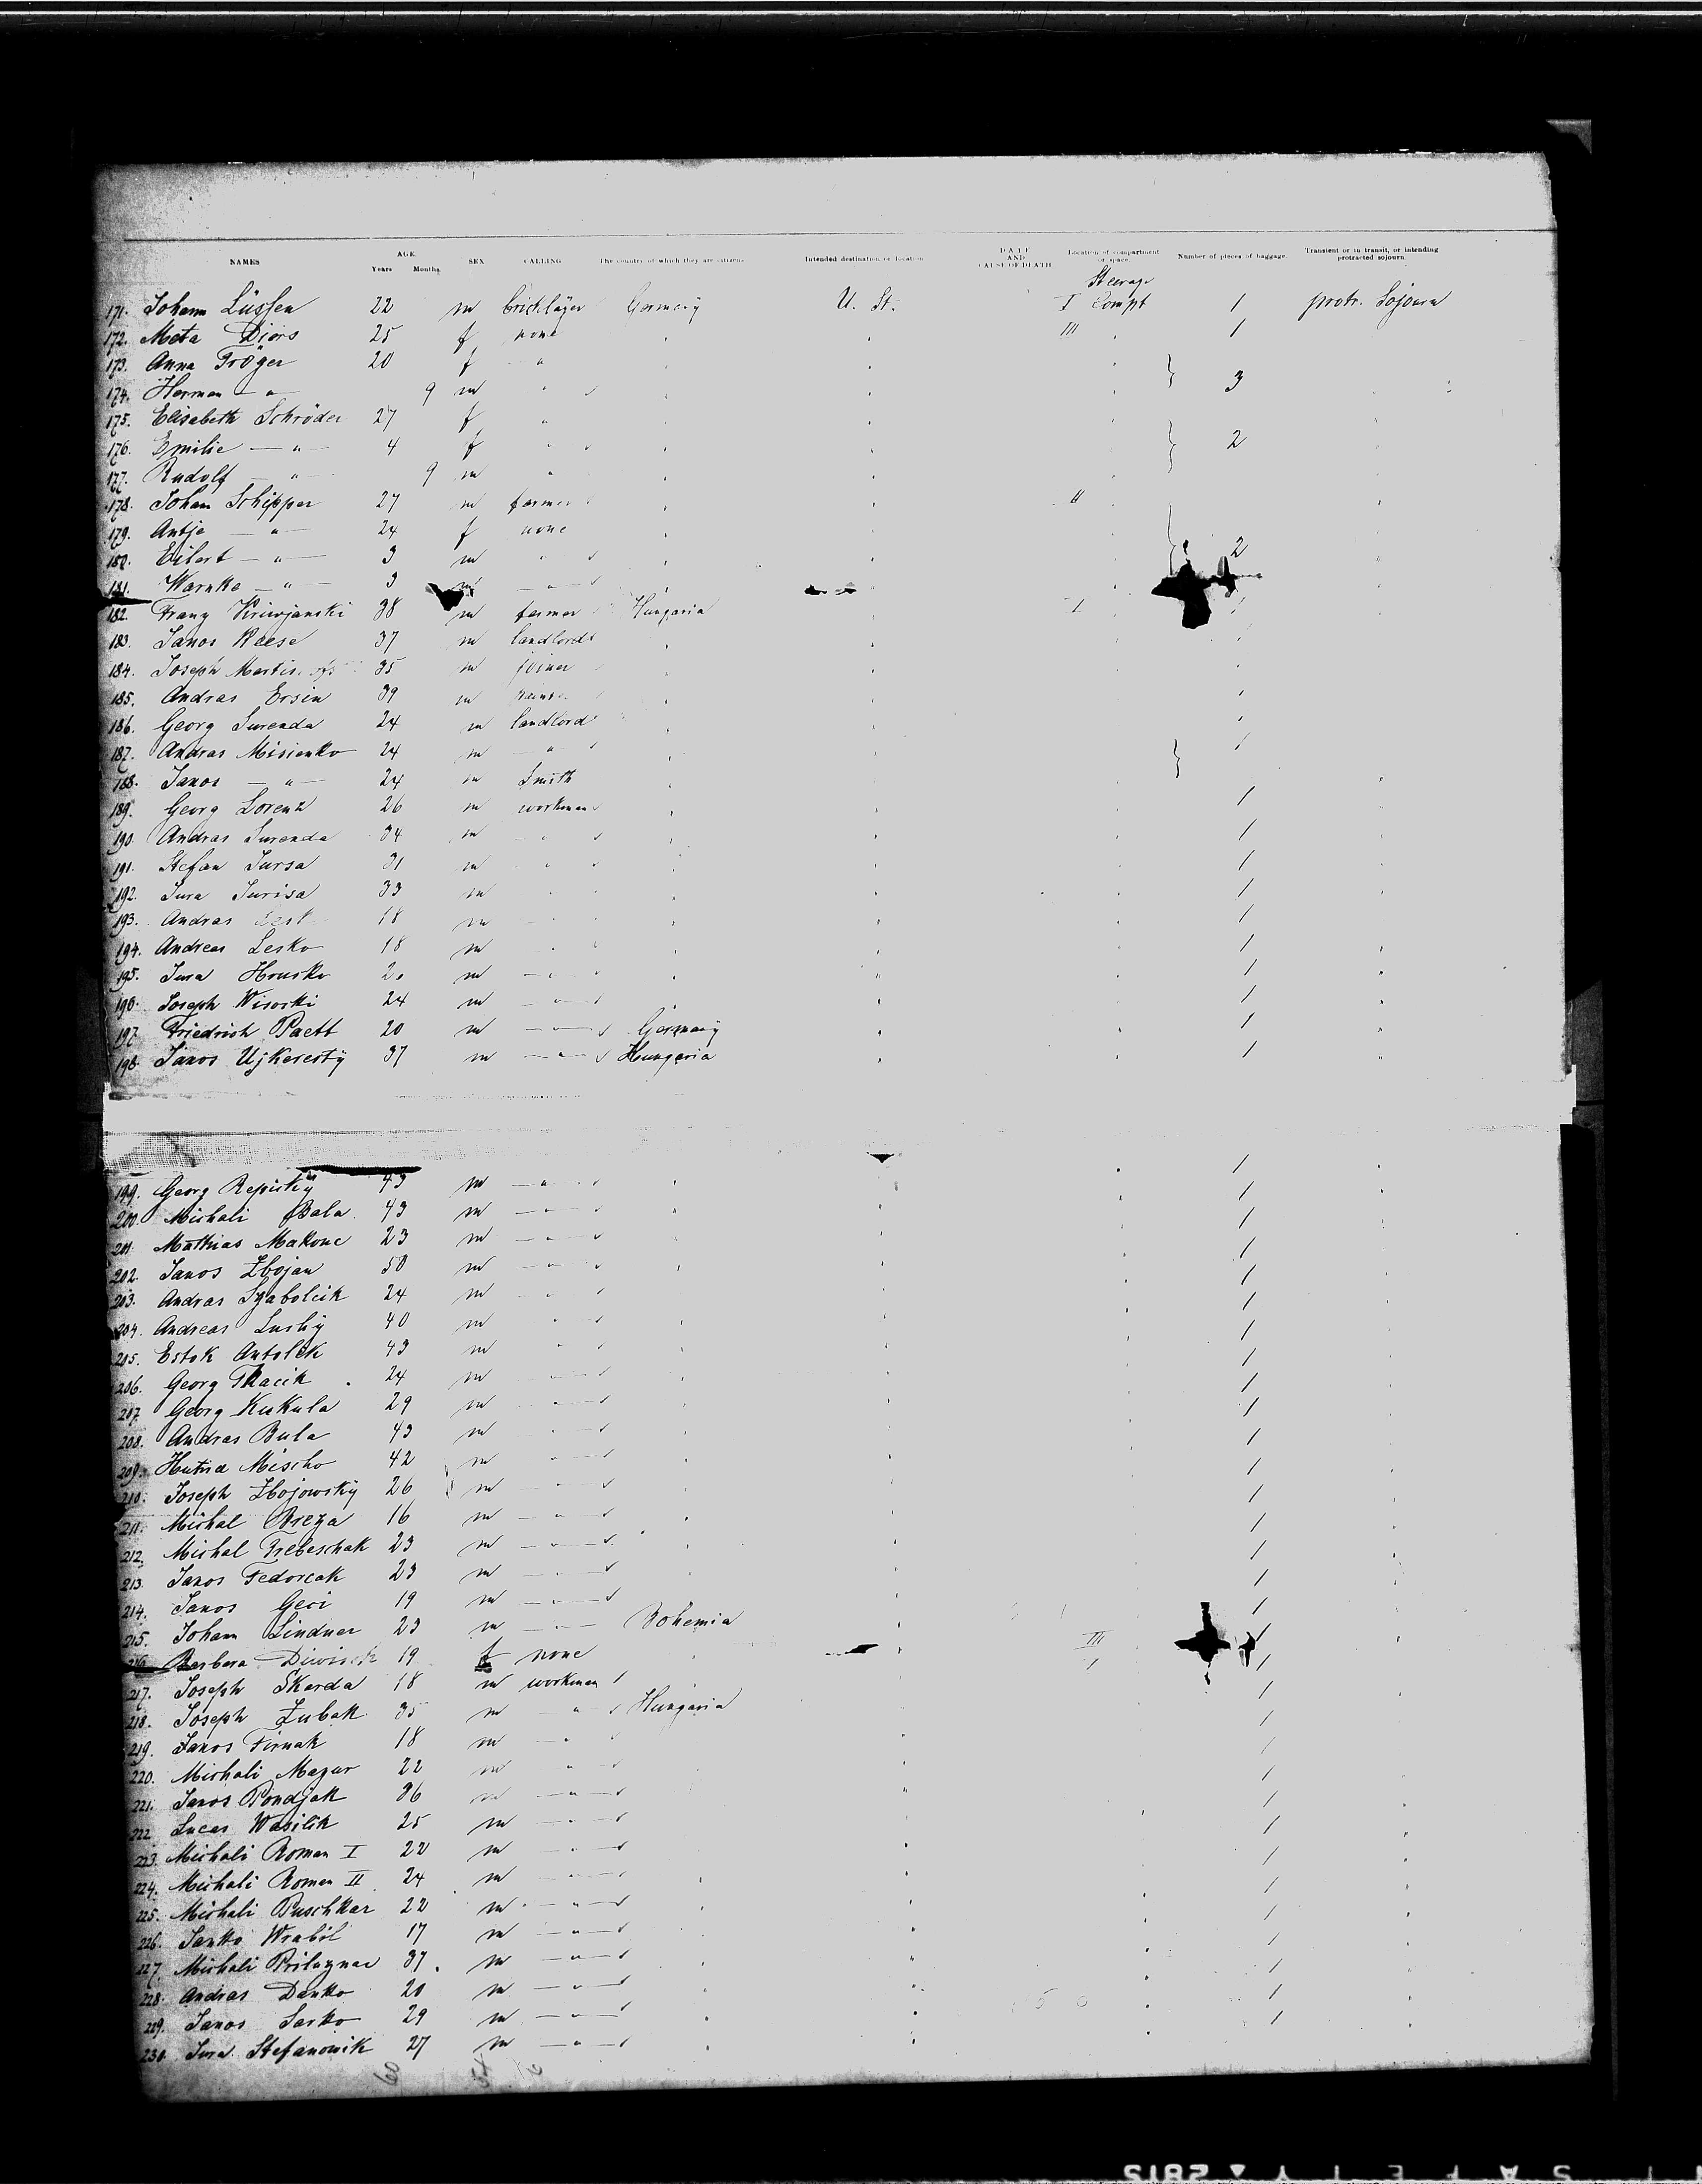 NAMES AGE Years Months SEX CALLING The country of which they are citizens Intended destination or location DATE AND CAUSE OF DEATH Location of compartment or space Number of pieces of baggage Transient or in transit, or intending protracted sojourn
Steerage
171. Johann Lüssen 22 m bricklayer Germany U. St. I Compt 1 protr. Sojourn
172. Meta Diers 25 f none " " III " 1
173. Anna Tröger 20 f " " " "
174. Herman — " — 9 m " " " " 3
175. Elisabeth Schröder 27 f " " " "
176. Emilie — " — 4 f " " " " 2
177. Rudolf — " — 9 m " " " "
178. Johann Schipper 27 m farmer " " II "
179. Antje — " — 24 f none " " "
180. Eilert — " — 3 m " " " " 2
181. Warnke — " — 3 m " "
182. Franz Kriwjanski 38 m farmer Hungaria " I 1
183. Janos Reese 37 m landlord " " " 1
184. Joseph 35 m joiner " " "
185. Andras Ersin 39 m " " " 1
186. Georg Surenda 24 m landlord " " " 1
187. Andras Misienko 24 m — " " " " 1
188. Janos — " — 24 m Smith " " "
189. Georg Lorenz 26 m workman " " " 1
190. Andras Surenda 34 m " " " " 1
191. Stefan Jursa 31 m " " " " 1
192. Jura Jurisa 33 m " " " " 1
193. Andras 18 m " " " " 1
194. Andreas Lesko 18 m " " " " 1
195. Jura Hrusko m — " — " " " 1
196. Joseph Wisocki 24 m — " — " " " 1
197. Friedrich Paett 20 m — " — Germany " " 1
198. Janos Ujkeresty 37 m — " — Hungaria " " 1
199. Georg Repisky 43 m — " — " " 1
200. Michali Bala 43 m — " — " " " 1
201. Mathias Makone 23 m — " — " " " 1
202. Janos Zbojan 50 m — " — " " " 1
203. Andras Szabolcik 24 m " " " " 1
204. Andreas 40 m " " " " 1
205. Estok Antolek 43 m " " " " 1
206. Georg Tkacik 24 m — " — " " " 1
207. Georg Kukula 29 m " " " " 1
208. Andras Bula 43 m " " " " 1
209. Mischo 42 m " " " " 1
210. Joseph Zbojowsky 26 m " " " " 1
211. Michal Breza 16 m — " — " " " 1
212. Michal Trebeschak 23 m — " — " " " 1
213. Janos Fedorcak 23 m — " — " " " 1
214. Janos Geci 19 m — " — " " 1
215. Johann Lindner 23 m — " — Bohemia " 1
216. Barbara 19 f none " " III 1
217. Joseph Skarda 18 m workman I 1
218. Joseph Zubak 35 m " Hungaria 1
219. Janos Firnak 18 m " " 1
220. Michali Mazur 22 m " " 1
221. Janos Pondjak 36 m — " — " 1
222. Lucas Wasilik 25 m — " — " " 1
223. Michali Roman I 22 m — " — " " 1
224. Michali Roman II 24 m — " — " " " 1
225. Michali Puschkar 22 m — " — " " " 1
226. Janko Wrabil 17 m — " — " " " 1
227. Michali 37 m — " — " " " 1
228. Andras Danko 20 m — " — " " " 1
229. Janos Sarko 29 m — " — " " " 1
230. Jura Stefanowik 27 m — " — " " "